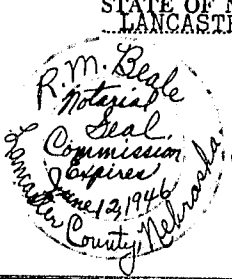 STATE OF N
LANCASTE
R.M. Beale
Notarial
Seal.
Commission
Expires
June 12, 1946
Lancaster County, Nebraska.